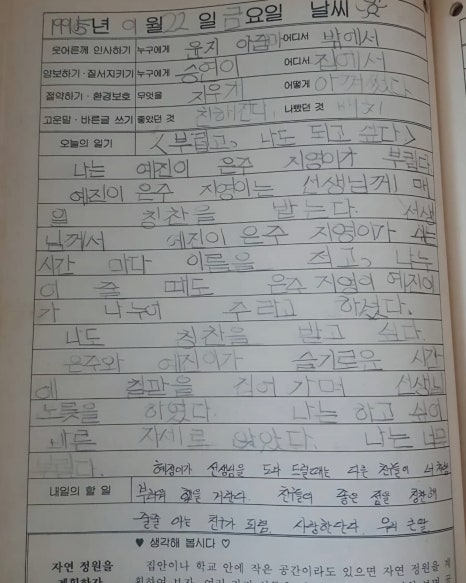 1995년 9월 22일 금요일 날씨
웃어른께 인사하기 누구에게 유지 아줌마 어디서 밖에서
양보하기·질서지키기 누구에게 승연이 어디서 집에서
절약하기·환경보호 무엇을 지우개 어떻게 아껴썼다
고운말·바른글 쓰기 좋았던 것 친해진다. 나빴던 것
오늘의 일기 <부럽고, 나도 되고 싶다>
나는 예진이 은주 지영이가 부럽다.
예진이 은주 지영이는 선생님께 매
일 칭찬을 받는다. 선생
님께서 예진이 은주 지영이가 쓰는
시간 마다 이름을 적고, 나누
어 줄 때도 은주 지영이 예진이
가 나누어 주라고 하셨다.
나도 칭찬을 받고 싶다.
은주와 예진이가 슬기로운 시간
에 칠판을 적어 가며 선생님
노릇을 하였다. 나는 하고 싶어
바른 자세로 앉았다. 나는 너무
부럽다.
혜정이가 선생님을 도와 드릴때는 다른 친구들이
내일의 할 일 부러워 했을 거란다. 친구들의 좋은 점을 칭찬해
줄줄 아는 친구가 되렴. 사랑한단다. 우리 큰딸
♥ 생각해 봅시다 ♡
자연 정원을 집안이나 학교 안에 작은 공간이라도 있으면 자연 정원을 계
계획하자